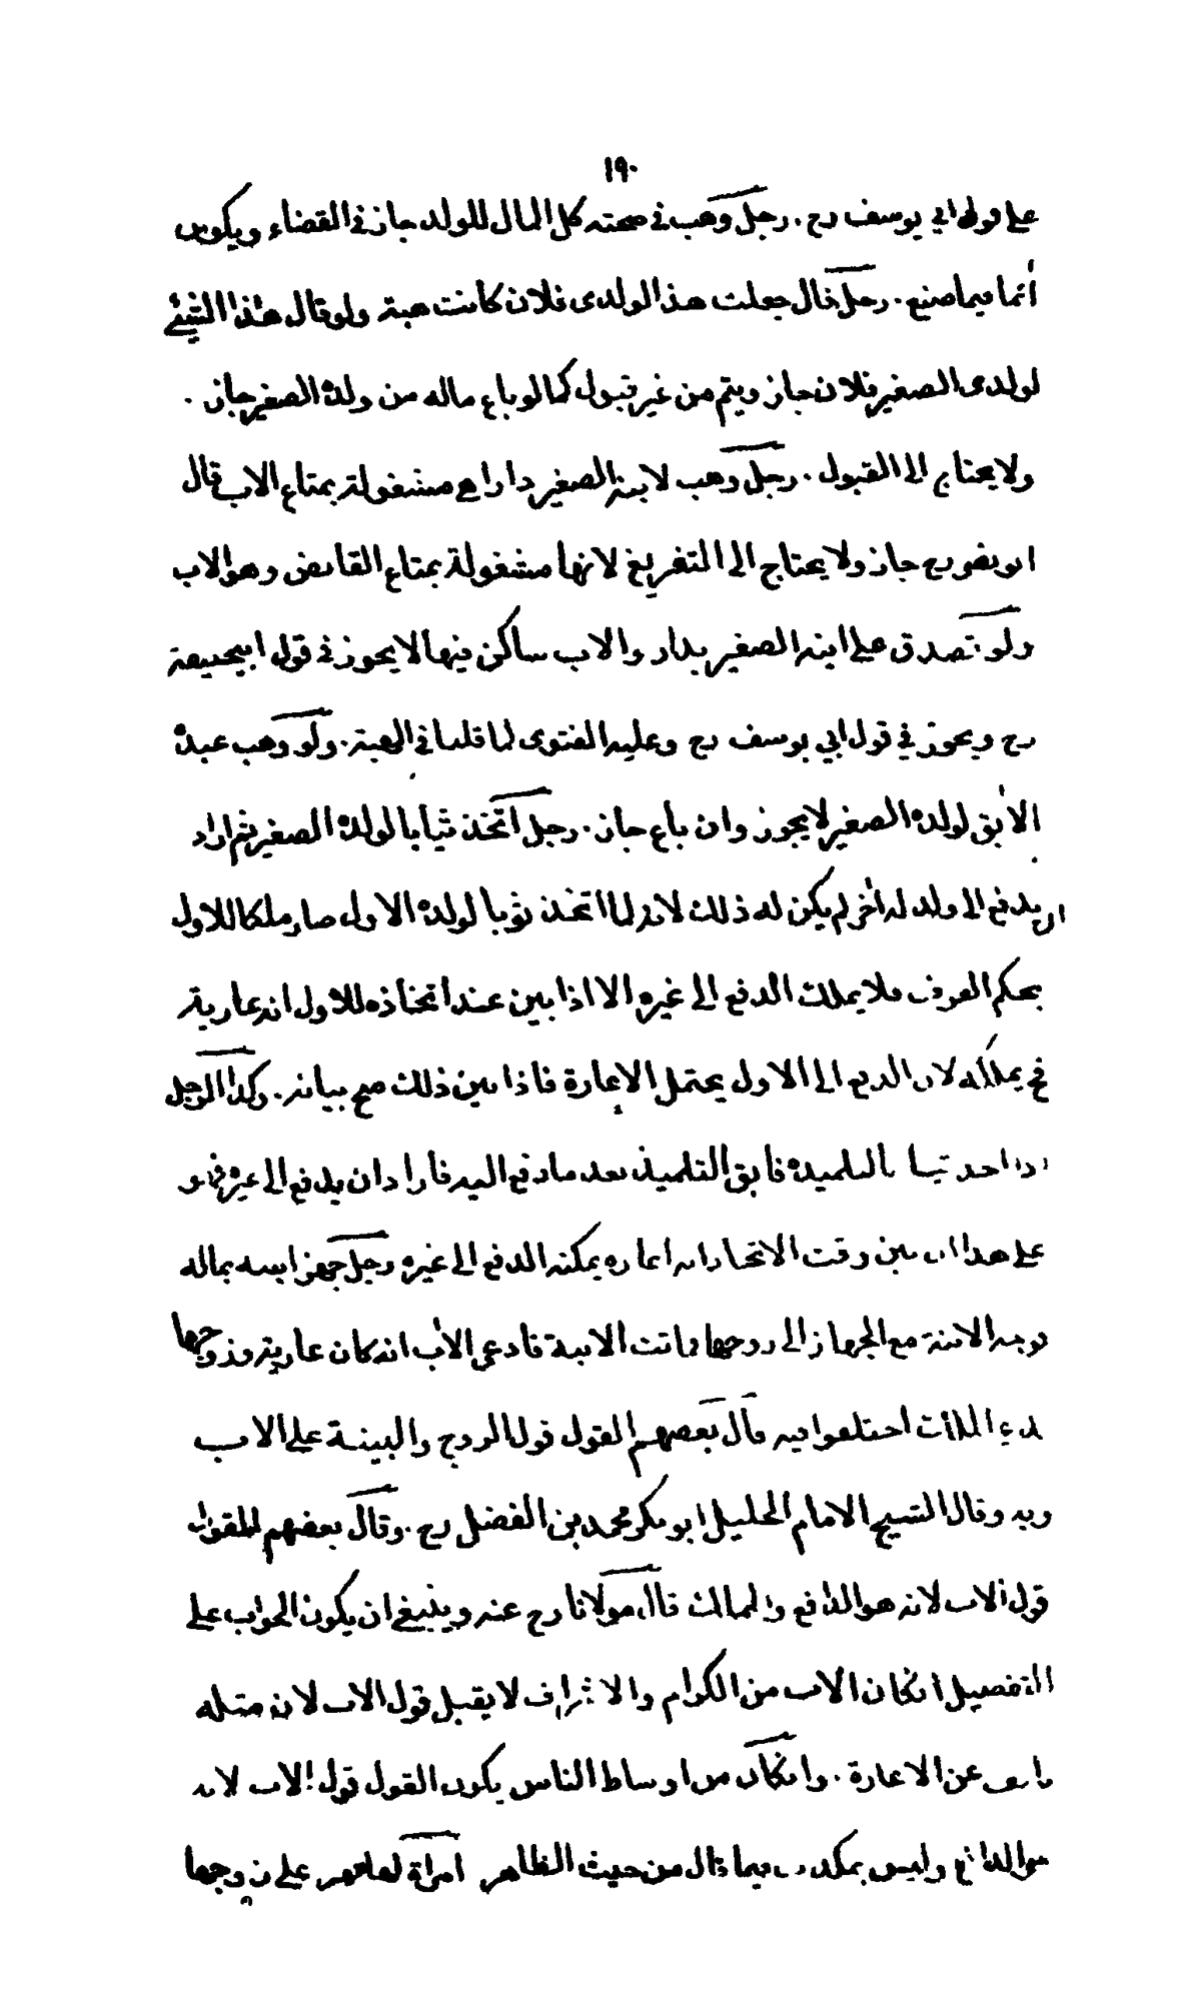 ١٩٠
على قول ابي يوسف رح . رجل وهب في صحته كل المال للولد جاز في القضاء ويكون
أثما فيما صنع . رجل قال جعلت هذا لولدى فلان كانت هبة ولو قال هذا الشيئ
لولدى الصغير فلان جاز ويتم من غير قبول كما لو باع ماله من ولده الصغير جاز .
ولا يحتاج الى القبول . رجل وهب لابنه الصغير دارا هي مشغولة بمتاع الاب قال
ابو نصر رح جاز ولا يحتاج الى التفريغ لانها مشغولة بمتاع القابض وهو الاب
ولو تصدق على ابنه الصغير بدار والاب ساكن فيها لا يجوز في قول ابيحنيفة
رح ويجوز في قول ابي يوسف رح وعليه الفتوى لما قلنا في الهبة . ولو وهب عبده
الأبق لولده الصغير لا يجوز وان باع جاز . رجل اتخذ ثيابا لولده الصغير ثم اراد
ان يدفع الى ولد له أخر لم يكن له ذلك لانه لما اتخذ ثوبا لولده الاول صار ملكا للاول
بحكم العرف فلا يملك الدفع الى غيره الا اذا بين عند اتخاذه للاول انه عارية
فح يملكه لان الدفع الى الاول يحتمل الاعارة فاذا بين ذلك صح بيانه . وكذا الرجل
اذا اتخذ ثيابا لتلميذه فابق التلميذ بعد ما دفع اليه فأراد ان يدفع الى غيره فهو
على هذا ان بين وقت الاتخاذ انه اعارة يمكنه الدفع الى غيره رجل جهز ابنته بماله
فوجه الابنة مع الجهاز الى زوجها فماتت الابنة فادعى الأب انه كان عارية وزوجها
يدعي الملك اختلفوا فيه قال بعضهم القول قول الزوج والبينة على الاب
وبه وقال الشيخ الامام الجليل ابو بكر محمد بن الفضل رح . وقال بعضهم القول
قول الاب لانه هو الدافع والمالك قال مولانا رح عنه وينبغي ان يكون الجواب على
التفصيل انكان الاب من الكرام والاشراف لا يقبل قول الاب لان مثله
يأنف عن الاعارة . وانكان من اوساط الناس يكون القول قول الاب لانه
هو الدافع وليس بمكذب فيما قال من حيث الظاهر امرأة لها مهر على زوجها